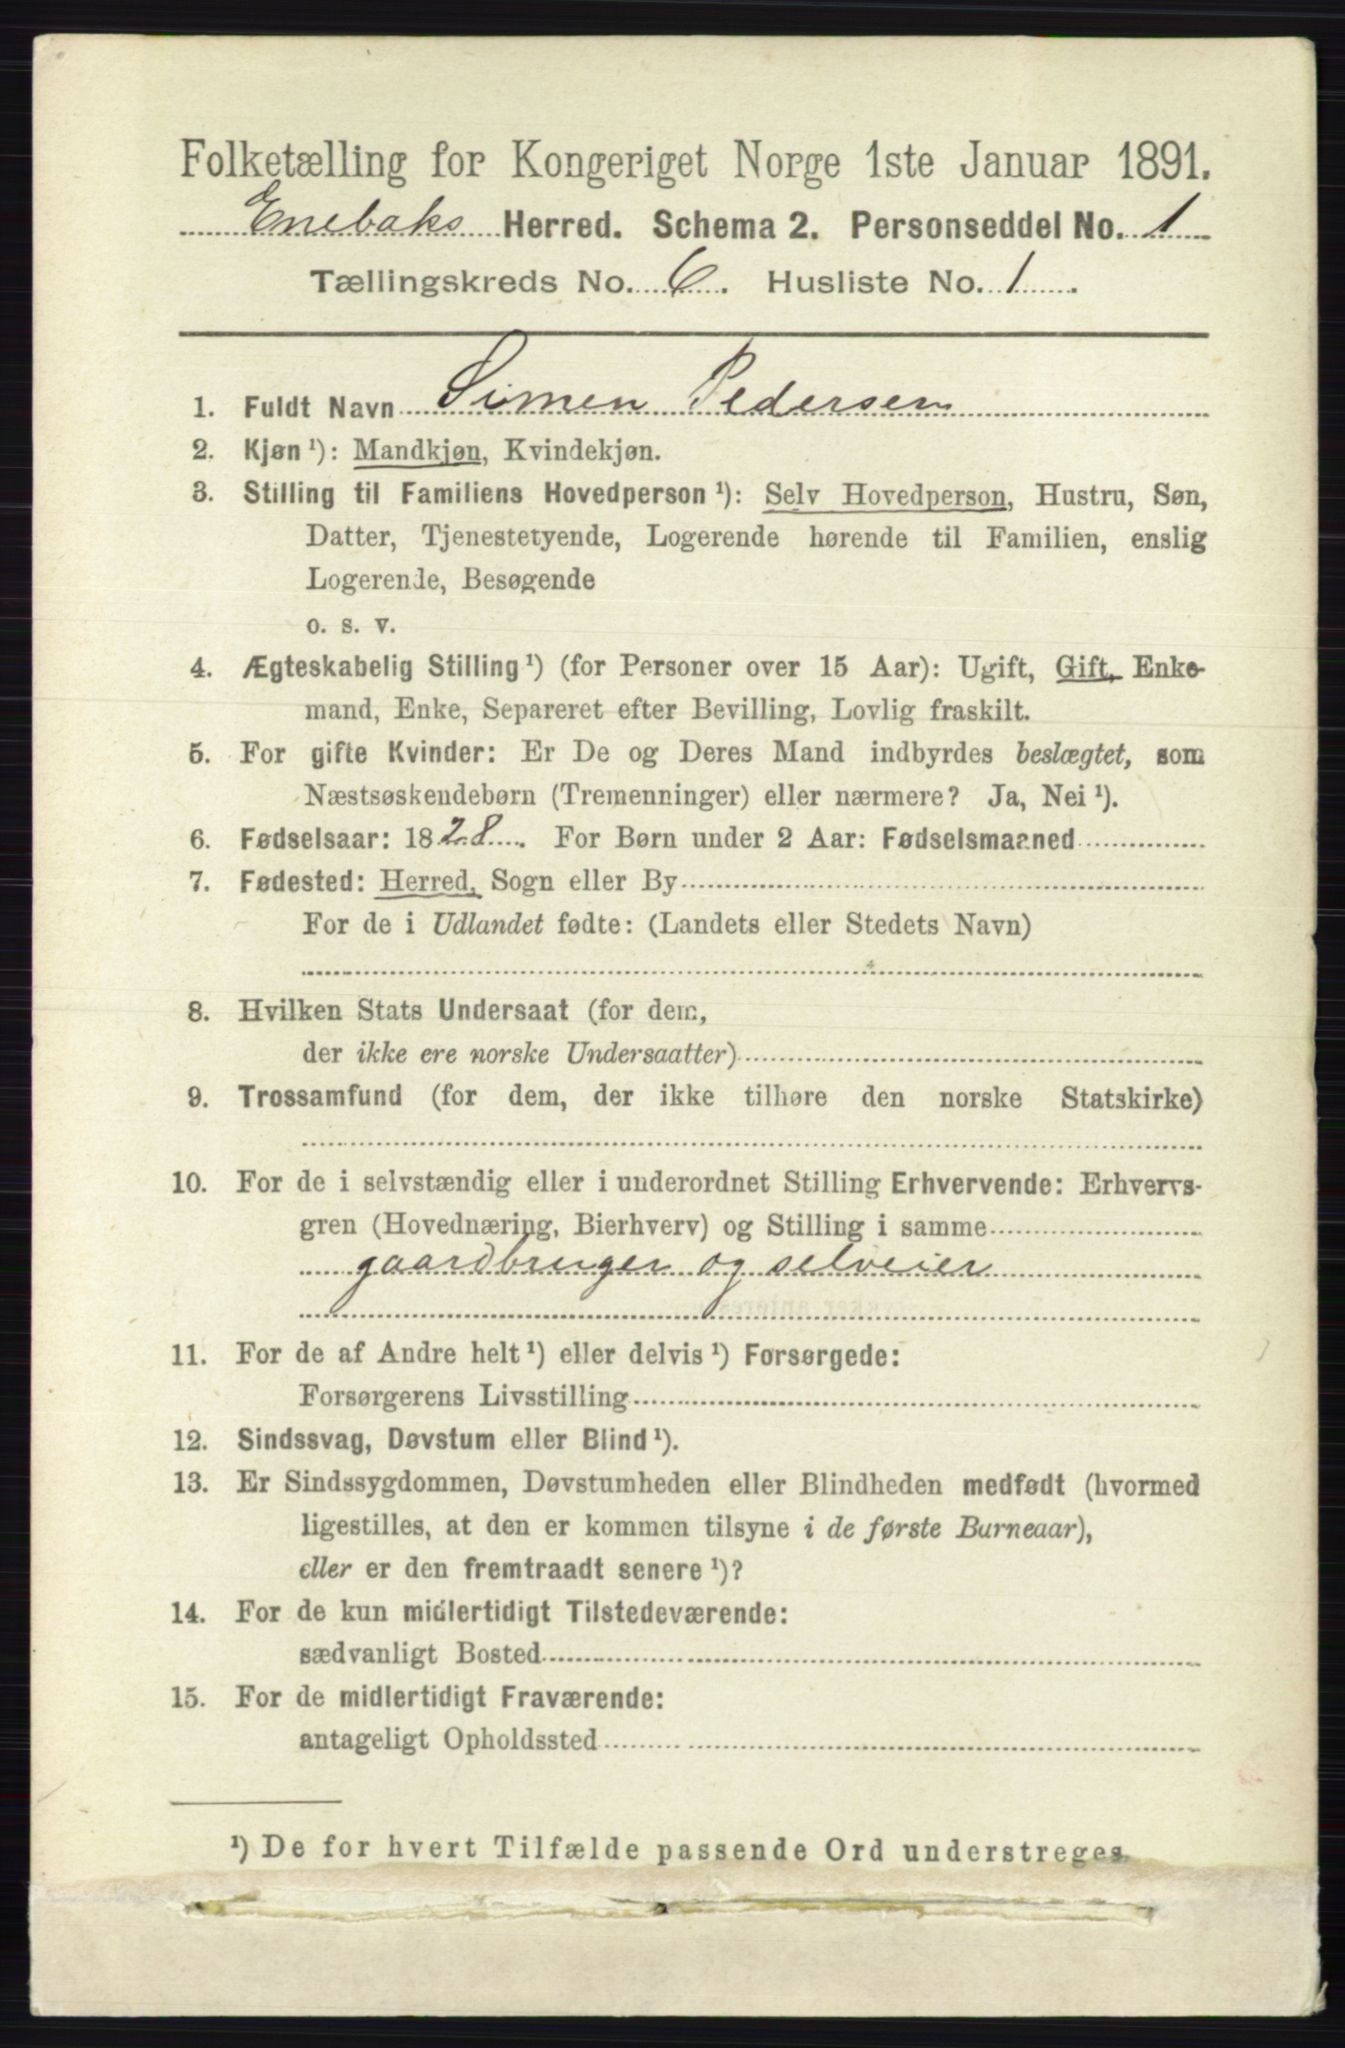 Folketælling for Kongeriget Norge 1ste Januar 1891.
Enebaks Herred. Schema 2. Personseddel No. 1
Tællingskreds No. 6. Husliste No. 1.
1. Fuldt Navn Simen Pedersen
2. Kjøn ¹): Mandkjøn, Kvindekjøn.
3. Stilling til Familiens Hovedperson ¹): Selv Hovedperson, Hustru, Søn,
Datter, Tjenestetyende, Logerende hørende til Familien, enslig
Logerende, Besøgende
o. s. v.
4. Ægteskabelig Stilling ¹) (for Personer over 15 Aar): Ugift, Gift, Enke-
mand, Enke, Separeret efter Bevilling, Lovlig fraskilt.
5. For gifte Kvinder: Er De og Deres Mand indbyrdes beslægtet, som
Næstsøskendebørn (Tremenninger) eller nærmere? Ja, Nei ¹).
6. Fødselsaar: 1828. For Børn under 2 Aar: Fødselsmaaned
7. Fødested: Herred, Sogn eller By
For de i Udlandet fødte: (Landets eller Stedets Navn)
8. Hvilken Stats Undersaat (for dem,
der ikke ere norske Undersaatter)
9. Trossamfund (for dem, der ikke tilhøre den norske Statskirke)
10. For de i selvstændig eller i underordnet Stilling Erhvervende: Erhvervs-
gren (Hovednæring, Bierhverv) og Stilling i samme
gaardbruger og selveier
11. For de af Andre helt ¹) eller delvis ¹) Forsørgede:
Forsørgerens Livsstilling
12. Sindssvag, Døvstum eller Blind ¹).
13. Er Sindssygdommen, Døvstumheden eller Blindheden medfødt (hvormed
ligestilles, at den er kommen tilsyne i de første Barneaar),
eller er den fremtraadt senere ¹)?
14. For de kun midlertidigt Tilstedeværende:
sædvanligt Bosted
15. For de midlertidigt Fraværende:
antageligt Opholdssted
¹) De for hvert Tilfælde passende Ord understreges.